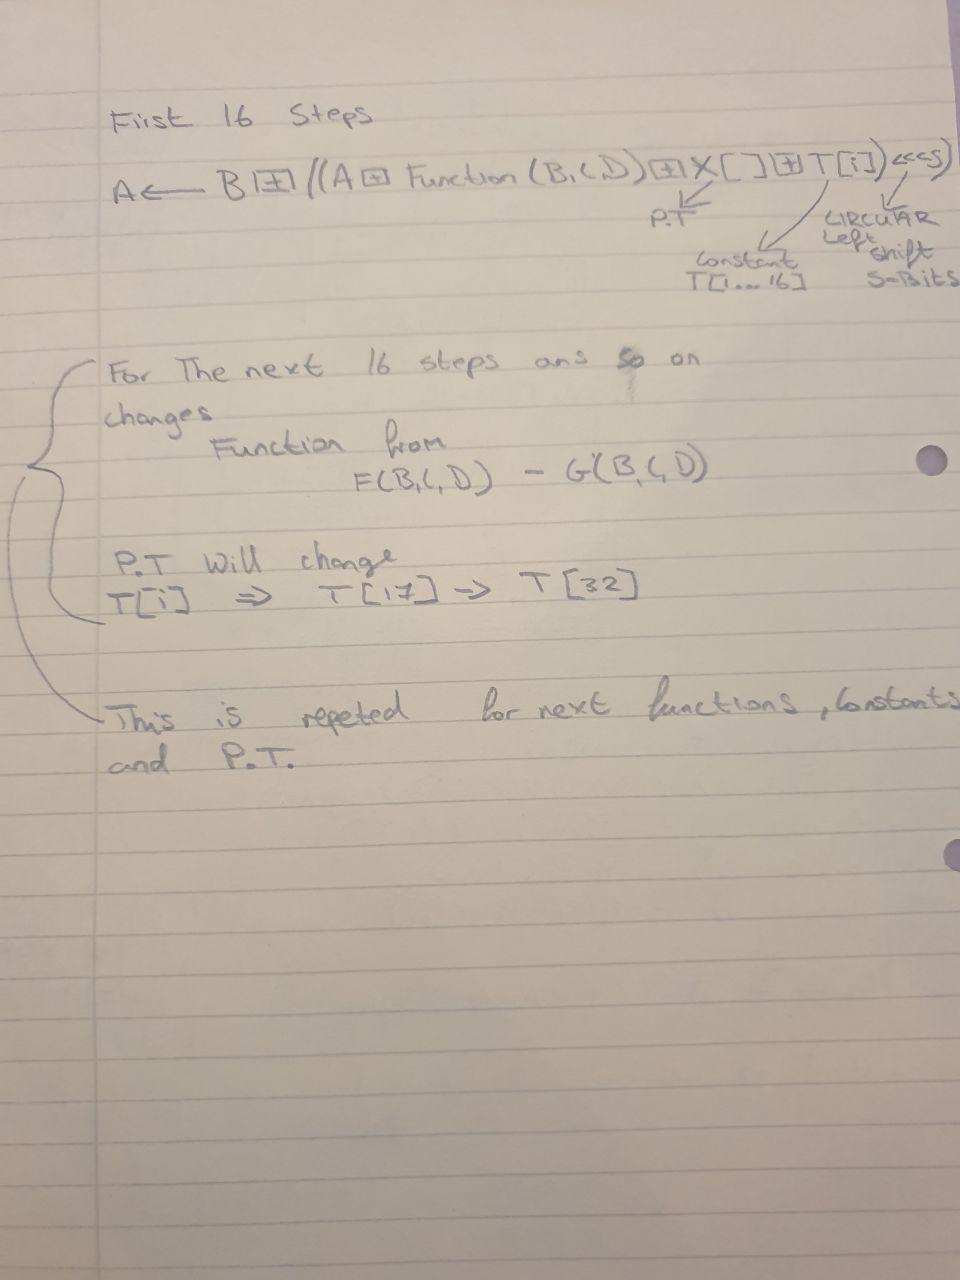 First 16 Steps
A ← B ⊞ ((A ⊞ Function (B,C,D) ⊞ X[ ] ⊞ T[i]) <<<s)
P.T
CIRCUTAR
Left
shift
S-Bits
Constant
T[1...16]
For The next 16 steps ans so on
changes
Function from
F(B,C,D) - G(B,C,D)
P.T will change
T[i] ⇒ T[17] → T[32]
This is repeted for next functions, Constants
and P.T.